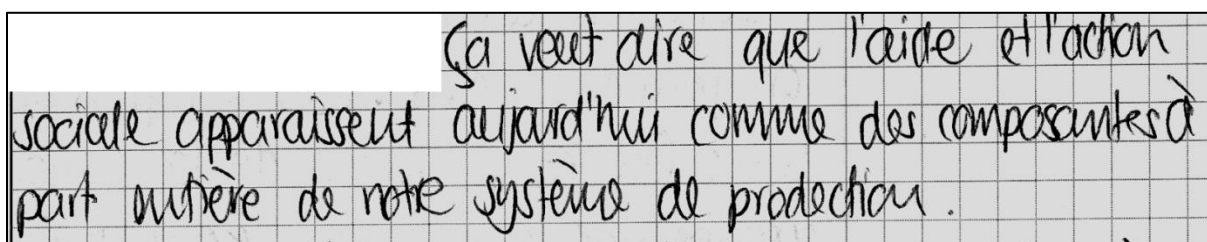 Ça veut dire que l'aide et l'action
sociale apparaissent aujourd'hui comme des composantes à
part entière de notre système de prodection.